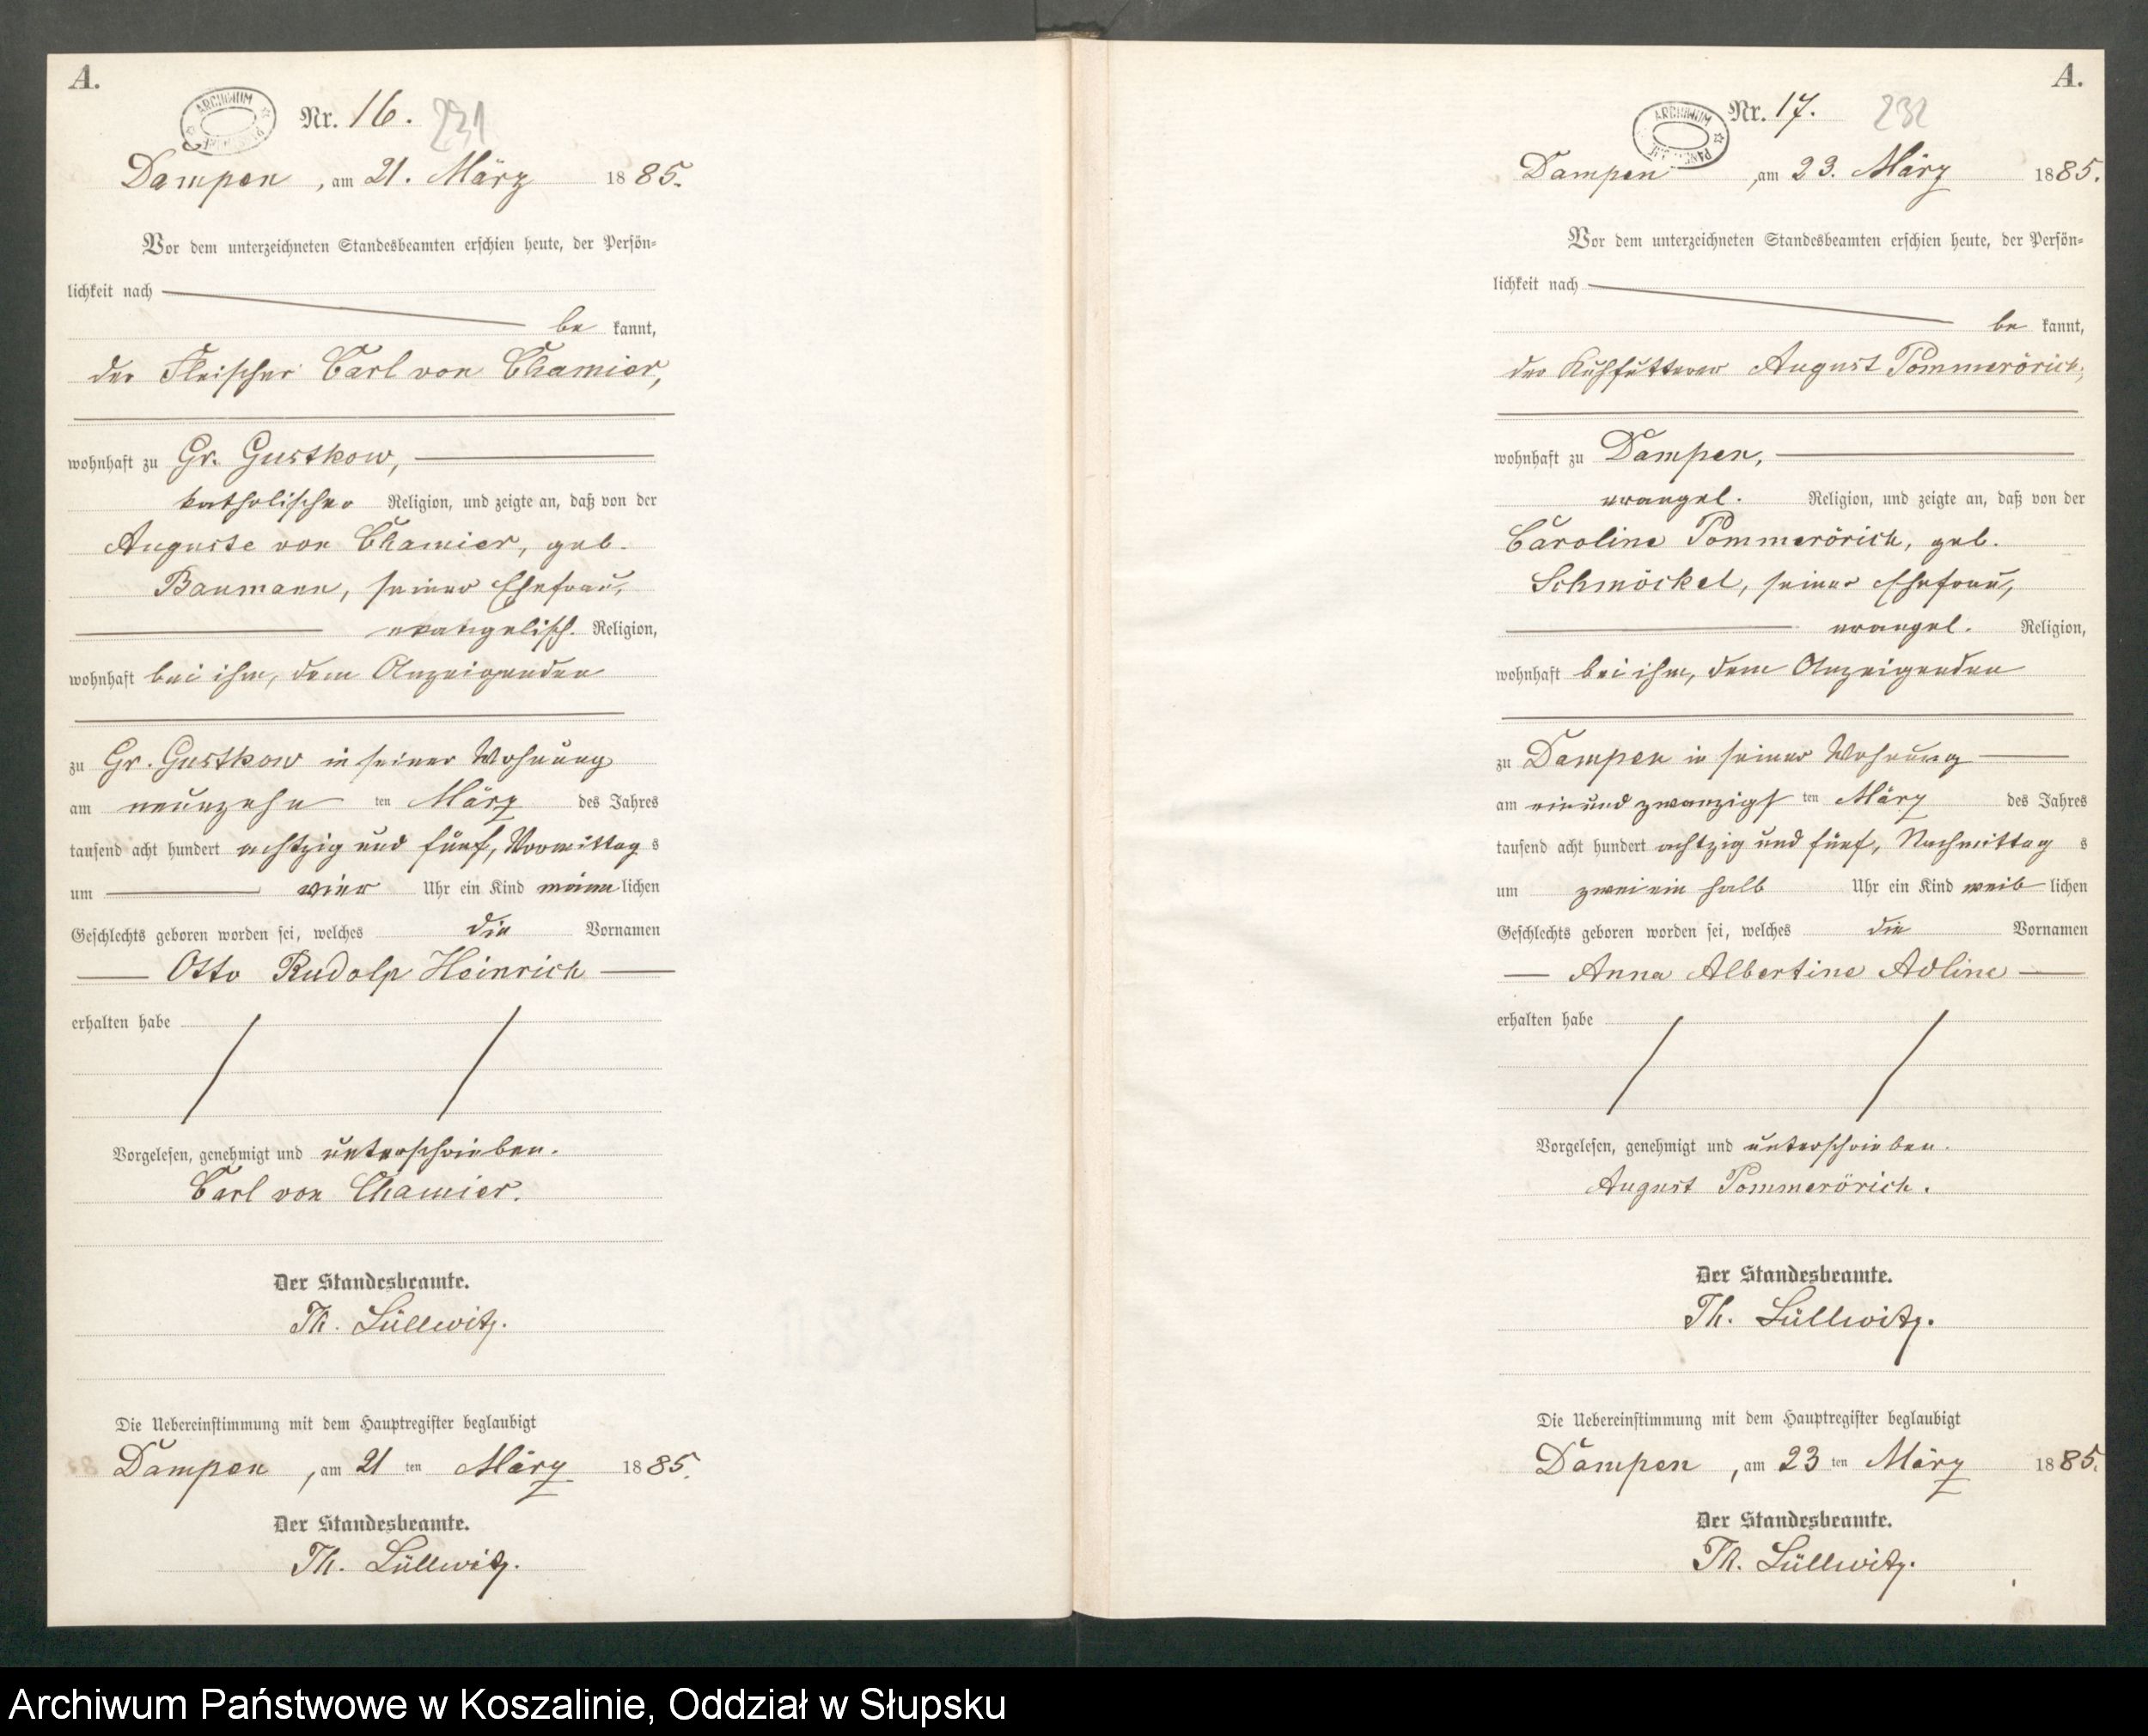 A.
ARCHIWUM
Nr. 16. 231
Dampen, am 21. März 1885.
Vor dem unterzeichneten Standesbeamten erschien heute, der Persön-
lichkeit nach
be kannt,
der Fleischer Carl von Chamier,
wohnhaft zu Gr. Gustkow,
katholischer Religion, und zeigte an, daß von der
Auguste von Chamier, geb.
Baumann, seiner Ehefrau,
evangelisch. Religion,
wohnhaft bei ihm, dem Anzeigenden
zu Gr. Gustkow in seiner Wohnung
am neunzehn ten März des Jahres
tausend acht hundert achtzig und fünf, Vormittag s
um vier Uhr ein Kind männ lichen
Geschlechts geboren worden sei, welches die Vornamen
Otto Rudolp Heinrich
erhalten habe
Vorgelesen, genehmigt und unterschrieben.
Carl von Chamier.
Der Standesbeamte.
Th. Lüllwitz.
Die Uebereinstimmung mit dem Hauptregister beglaubigt
Dampen, am 21 ten März 1885.
Der Standesbeamte.
Th. Lüllwitz.
A.
ARCHIWUM
Nr. 17. 232
Dampen, am 23. März 1885.
Vor dem unterzeichneten Standesbeamten erschien heute, der Persön-
lichkeit nach
be kannt,
der Kuhfutterer August Pommerörich,
wohnhaft zu Dampen,
evangel. Religion, und zeigte an, daß von der
Caroline Pommerörich, geb.
Schmöckel, seiner Ehefrau,
evangel. Religion,
wohnhaft bei ihm, dem Anzeigenden
zu Dampen in seiner Wohnung
am einundzwanzigs ten März des Jahres
tausend acht hundert achtzig und fünf, Nachmittag s
um zweiein halb Uhr ein Kind weib lichen
Geschlechts geboren worden sei, welches die Vornamen
Anna Albertine Adline
erhalten habe
Vorgelesen, genehmigt und unterschrieben.
August Pommerörich.
Der Standesbeamte.
Th. Lüllwitz.
Die Uebereinstimmung mit dem Hauptregister beglaubigt
Dampen, am 23 ten März 1885.
Der Standesbeamte.
Th. Lüllwitz.
Archiwum Państwowe w Koszalinie, Oddział w Słupsku